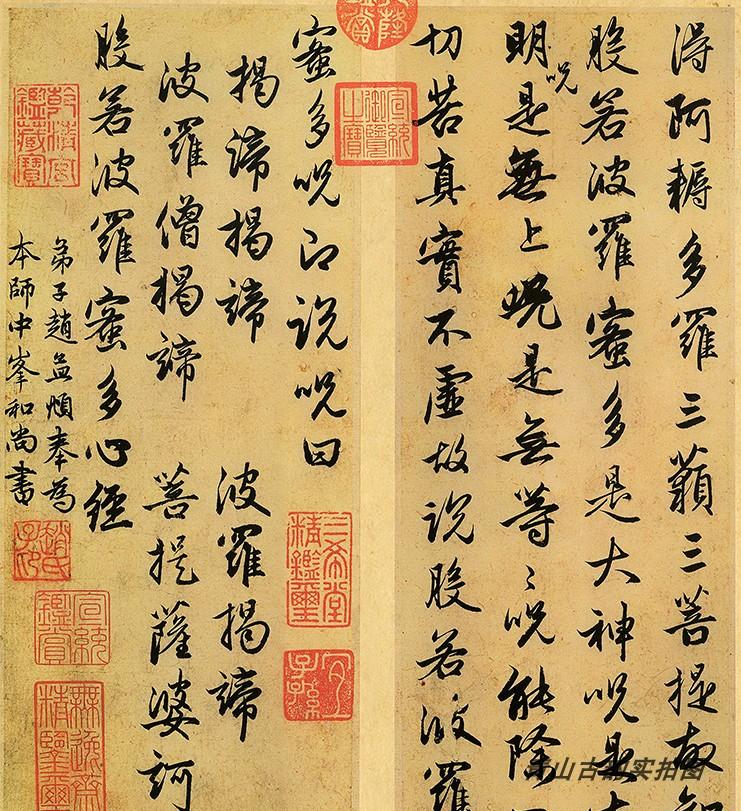 得阿耨多羅三藐三菩提故知
般若波羅蜜多是大神呪是大
明呪是無上呪是無等〻呪能除
切苦真實不虛故說般若波羅
蜜多呪即說呪曰
揭諦揭諦 波羅揭諦
波羅僧揭諦 菩提薩婆訶
般若波羅蜜多心經
弟子趙孟頫奉為
本師中峯和尚書
宣統御覽之寶
三希堂精鑑璽
宜子孫
乾清宮鑑藏寶
宣統鑑賞
無逸齋精鑒璽